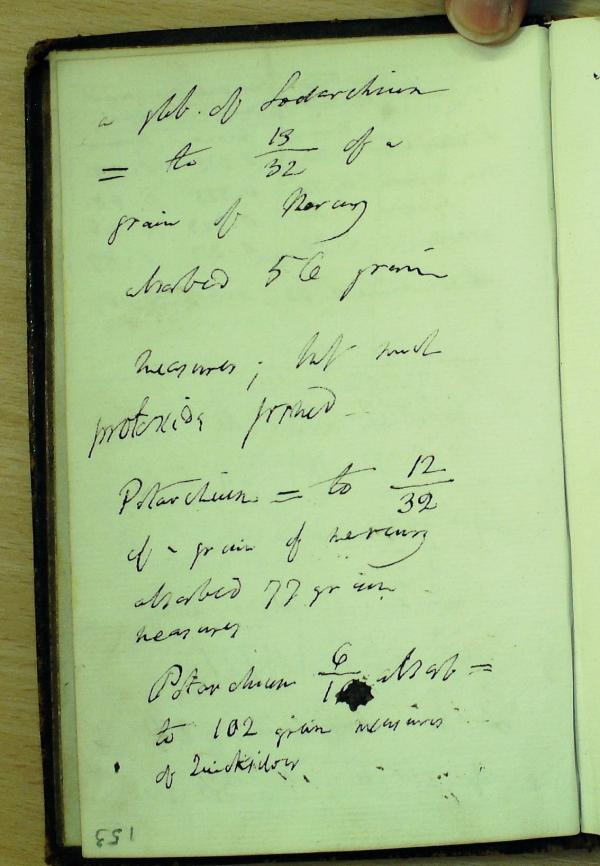 a glob. of Sodarchium
= to 13/32 of a
grain of Mercury
absorbed 56 grain
measures; but much
protoxide formed
Potarchium = to 12/32
of a grain of mercury
absorbed 77 grain
measures
Potarchium absorb =
to 102 grain measures
of Quicksilver
153